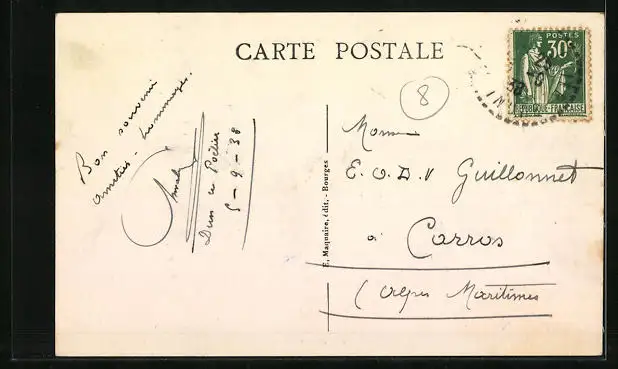 CARTE POSTALE
POSTES
30c
REPUBLIQUE-FRANÇAISE
38
8
Bon souvenir
amitiés - hommages.
Dun le Poëlier
5-9-38
E. Maquaire, édit. - Bourges
E. O. D. V Guillonnet
à Carros
(Alpes Maritimes